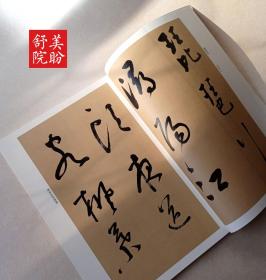 美盼
舒院
琵琶行
潯陽江
頭夜送
客楓葉